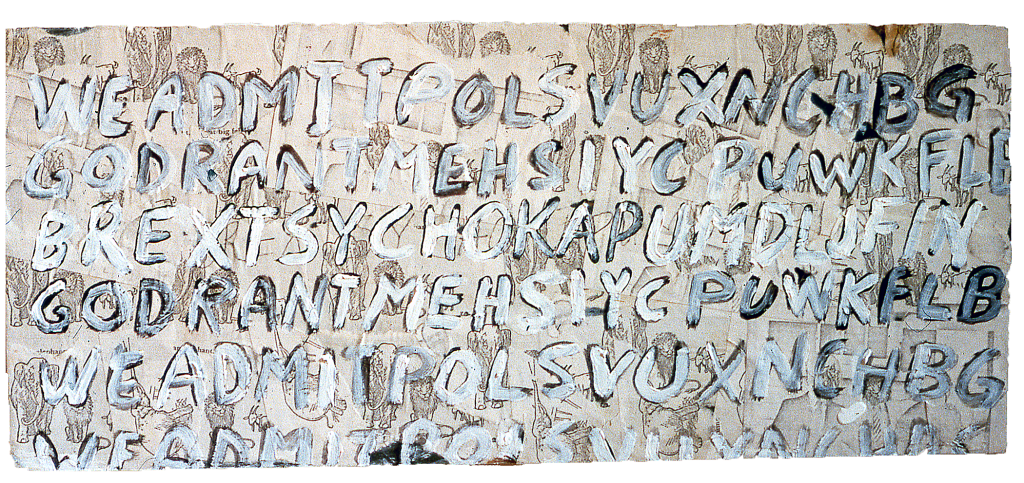 WEADMITPOLSVUXNCHBG
GODRANTMEHSIYCPUWKFLB
BREXTSYCHOKAPUMDLJFIN
GODRANTMEHSIYCPUWKFLB
WEADMITPOLSVUXNCHBG
WEADMITPOLSVUXNCHBG